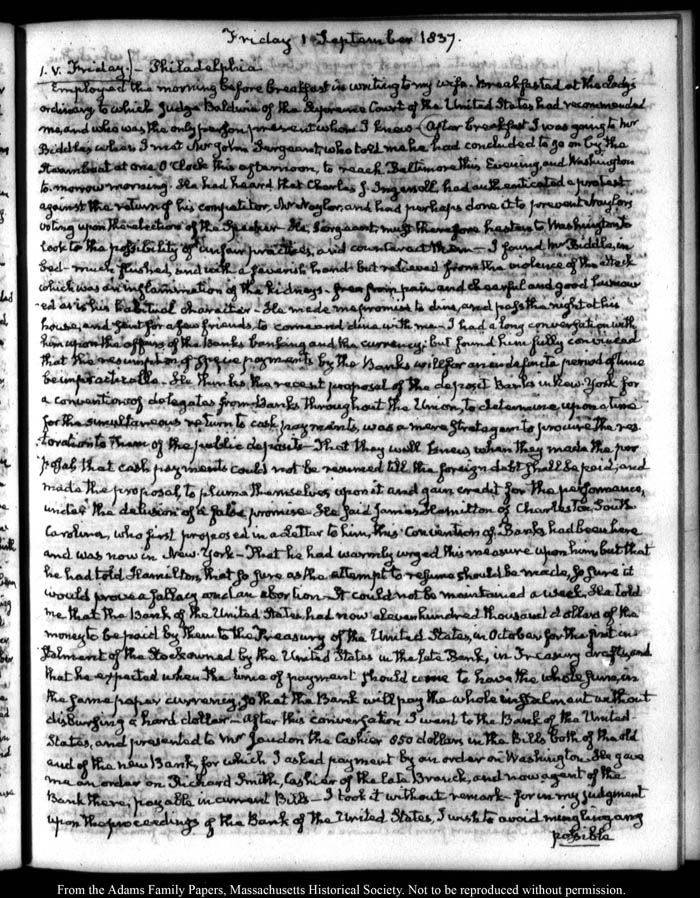 Friday 1 September 1837.
1. V. Friday.} Philadelphia.
Employed the morning before breakfast in writing to my wife. Breakfasted at the Ladys
ordinary to which Judge Baldwin of the Supreme Court of the United States had recommended
me, and who was the only person present whom I knew. After breakfast I was going to Mr
Biddle's when I met Mr John Sergeant, who told me he had concluded to go on by the
Steamboat at one O'Clock this afternoon, to reach Baltimore this Evening, and Washington
to-morrow morning. He had heard that Charles J. Ingersoll had authenticated a protest
against the return of his competitor, Mr Naylor, and had perhaps done it to prevent Naylor's
voting upon the election of the Speaker— He, Sergeant, must therefore hasten to Washington to
look to the possibility of unfair practices, and counteract them— I found Mr Biddle, in
bed— much flushed, and with a feverish hand— but relieved from the violence of the attack
which was an inflammation of the kidneys. free from pain, and cheerful and good humour
-ed as is his habitual character— He made me promise to dine, and pass the night at his
house, and sent for a few friends, to come and dine with me— I had a long conversation with
him upon the affairs of the Banks banking and the currency; but found him fully convinced
that the resumption of specie payments by the Banks will for an indefinite period of time
be impracticable— He thinks the recent proposal of the deposit Banks in New York for
a convention of delegates from Banks throughout the Union, to determine upon a time
for the simultaneous return to cash payments, was a mere stratagem to procure the res-
toration to them of the public deposits— That they well knew, when they made the pro
posal that cash payments could not be resumed till the foreign debt shall be paid; and
made the proposal to plume themselves upon it and gain credit for the performance,
under the delusion of a false promise. He said James Hamilton of Charleston, South
Carolina, who first proposed in a Letter to him, this Convention of Banks had been here
and was now in New York— That he had warmly urged this measure upon him, but that
he had told Hamilton, that so sure as the attempt to resume should be made, so sure it
would prove a fallacy and an abortion— It could not be maintained a week. He told
me that the Bank of the United States, had now eleven hundred thousand dollars of the
money to be paid by them to the Treasury of the United States, in October, for the first in-
stalment of the Stock owned by the United States in the late Bank, in Treasury drafts, and
that he expected when the time of payment should come to have the whole sum, in
the same paper currency, so that the Bank will pay the whole instalment without
disbursing a hard dollar— After this conversation I went to the Bank of the United
States, and presented to Mr Jaudon the Cashier 850 dollars in the Bills both of the old
and of the new Bank, for which I asked payment by an order on Washington. He gave
me an order on Richard Smith, Cashier of the late Branch, and now agent of the
Bank there, payable in current Bills— I took it without remark— for in my judgment
upon the proceedings of the Bank of the United States, I wish to avoid mingling any
possible
From the Adams Family Papers, Massachusetts Historical Society. Not to be reproduced without permission.